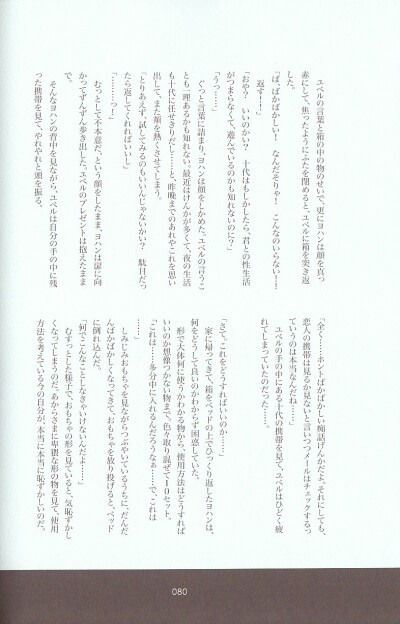 ユベルの言葉と箱の中の物のせいで、更にヨハンは顔を真っ
赤にして、焦ったようにふたを閉めると、ユベルに箱を突き返
した。
「ば、ばかばかしい！　なんだそりゃ！　こんなのいらない！！
返す！！」
「おや？　いいのかい？　十代はもしかしたら、君との性生活
がつまらなくて、遊んでいるのかも知れないのに？」
「うっ……」
ぐっと言葉に詰まり、ヨハンは顔をしかめた。ユベルの言うこ
とも一理あるかも知れない。最近はげんかが多くて、夜の生活
も十代に任せきりだし……と、昨晩までのあれやこれを思い
出して、また顔を熱くさせてしまう。
「とりあえず、試してみるのもいいんじゃないかい？　駄目だっ
たら返してくれればいいし」
「………っー」
むっとして不本意だ、という顔をしたまま、ヨハンは扉に向
かってずんずん歩き出した。ユベルのプレゼントは抱えたまま
で。
そんなヨハンの背中を見ながら、ユベルは自分の手の中に残
った携帯を見て、やれやれと頭を振る。
「全く……ホントばかばかしい痴話げんかだよ。それにしても、
恋人の携帯は見るか見ないと言いつつメールはチェックするっ
ていうのは本当なんだね……」
ユベルの手の中にある十代の携帯を見て、ユベルはひどく疲
れてしまっていたのだった……。
「さて、これをどうすればいいのか……」
家に帰ってきて、箱をベッドの上でひっくり返したヨハンは、
何をどうして良いのかわからず困惑していた。
形で大体何に使うかわかる物から、使用方法はどうすれば
いいのか想像つかない物まで、色々取り混ぜて10セット。
「これは……多分中に入れるんだろうなぁ……で、これは
しみじみおもちゃを見ながらつぶやいているうちに、だんだ
んばかばかしくなってきて、おもちゃを放り投げると、ベッド
に倒れ込んだ。
「何でこんなことしなきゃいけないんだよ……」
むすっとした様子で、おもちゃの形を見ていると、気恥ずかし
くなってしまうのだ。あからさまに卑猥な形の物を見て、使用
方法を考えている今の自分が、本当に本当に恥ずかしいのだ。
080